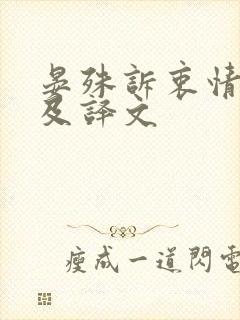 晏殊訴衷情
及譯文
瘦成一道閃電